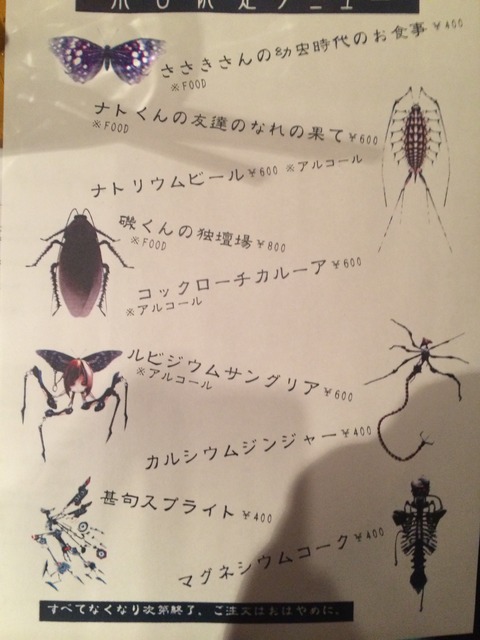 ささきさんの幼虫時代のお食事 ¥400
※FOOD
ナトくんの友達のなれの果て ¥600
※FOOD
ナトリウムビール ¥600 ※アルコール
磯くんの独壇場 ¥800
※FOOD
コックローチカルーア ¥600
※アルコール
ルビジウムサングリア ¥600
※アルコール
カルシウムジンジャー ¥400
甚句スプライト ¥400
マグネシウムコーク ¥400
すべてなくなり次第終了、ご注文はおはやめに。